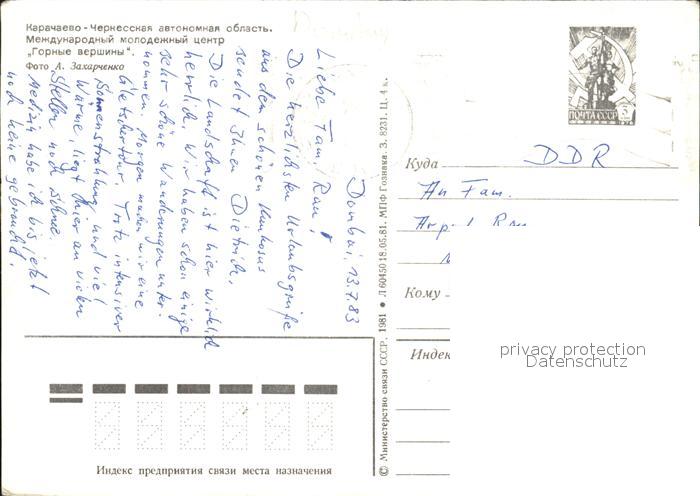 Карачаево-Черкесская автономная область.
Международный молодежный центр
„Горные вершины".
Фото А. Захарченко
Dombai, 13.7.83
Liebe Fam. Rau!
Die herzlichsten Urlaubsgrüße
aus dem schönen
sendet Ihnen Dietrich.
Die Landschaft ist hier wirklich
herrlich. Wir haben schon einige
sehr schöne Wanderungen unter-
nommen. Morgen machen wir eine
Gletschertour. Trotz intensiver
Sonnenstrahlung und viel
Wärme, liegt hier an vielen
Stellen noch Schnee.
Medizin habe ich bis jetzt
noch keine gebraucht.
© Министерство связи СССР. 1981 ● Л 60450 18.05.81. МПФ Гознака. З. 8231. Ц. 4 к.
ПОЧТА СССР
Куда DDR
An Fam.
Кому
Индек
privacy protection
Datenschutz
Индекс предприятия связи места назначения